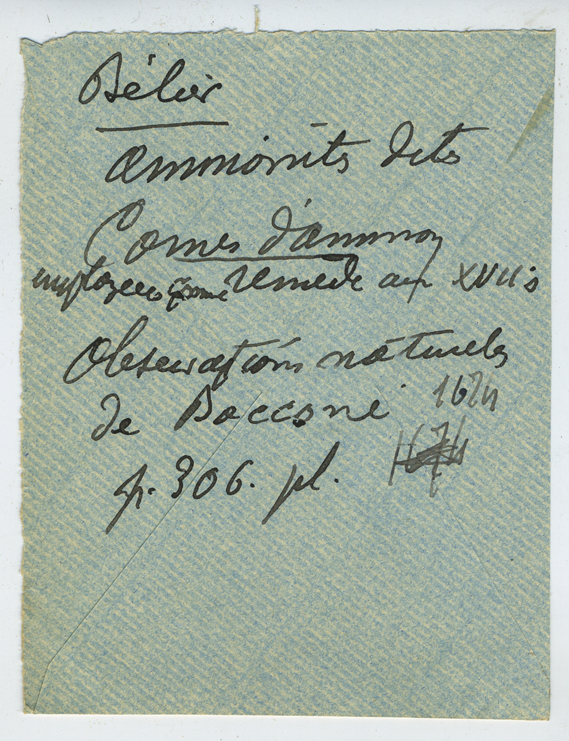 Bélier
ammonites dites
Cornes d'ammon
employées comme remède au XVII s
Observations naturelles
de Boccone 1674
1674
p. 306. pl.